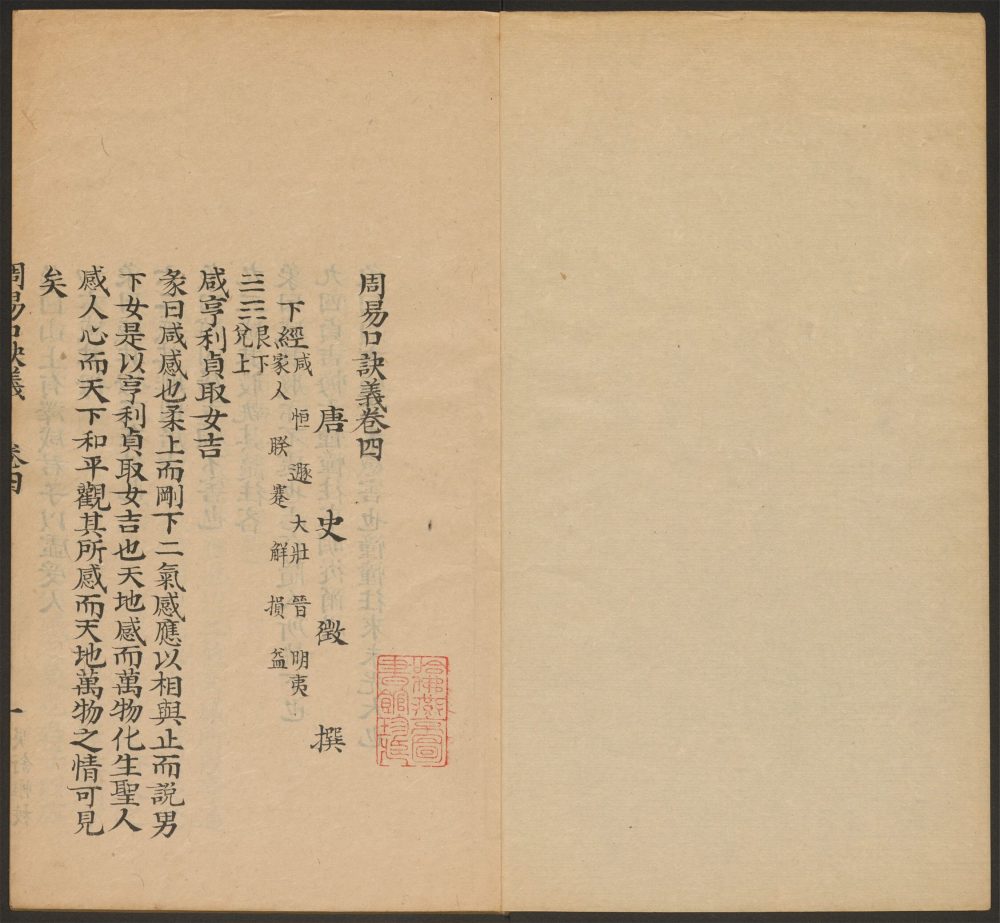 周易口訣義卷四
唐 史 徵 撰
下經咸 恒 遯 大壯 晉 明夷
家人 睽 蹇 解 損 益
艮下
兌上
咸亨利貞取女吉
彖曰咸感也柔上而剛下二氣感應以相與止而說男
下女是以亨利貞取女吉也天地感而萬物化生聖人
感人心而天下和平觀其所感而天地萬物之情可見
矣
周易口訣義 卷四 一
哈佛燕京圖
書館珍藏印